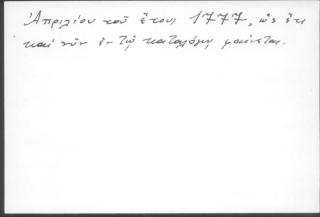 Ἀπριλίου τοῦ ἔτους 1777, ὡς ἔτι
καὶ νῦν ἐν τῷ καταλόγῳ φαίνεται.